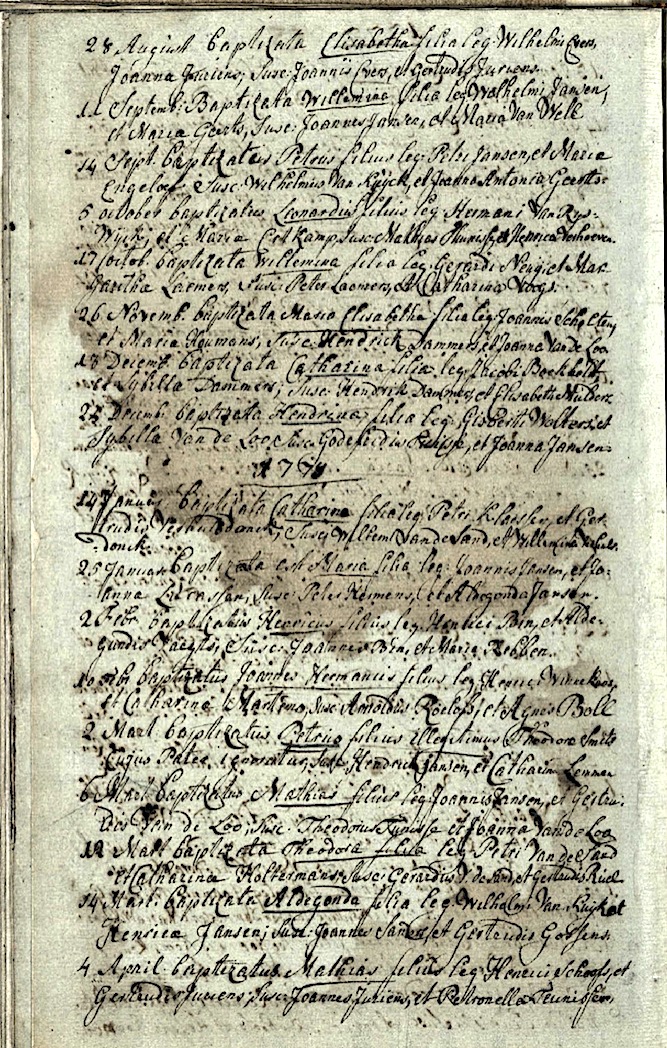 28 August baptizata Elisabetha filia leg: Wilhelmi Evers,
Joanna Juriens; Susc: Joannis Evers, et Gertrudis Juriens.
11 Septemb: Baptizata Willemina filia leg Wilhelmi Jansen,
et Maria Geerts, Susc: Joannes Jansen, et Maria Van Well
14 Sept. baptizatus Petrus filius leg: Petri Jansen, et Maria
Engelog Susc: Wilhelmus Van Kuijck, et Joanna Antonia Geerts:
5 october baptizatus Leonardus filius leg: Hermani Van Rys-
Wijck, et Maria Erlkamp, Susc: Mathias et Henrica Verhoeven.
17 octob. baptizata Willemina filia leg Gerardi et Mar-
garitha Laemers, Susc: Peter Laemers, et Catharina
26 Novemb. baptizata Maria Elisabetha filia leg: Joannis Scholten,
et Maria Heumans, Susc: Hendrick Dammers, et Joanna Van de Loo
13 Decemb. baptizata Catharina filia leg: Jacobi Bockholt
et Sybilla Dammers, Susc: Hendrick Dammers, et Elisabetha Mulders
Decemb. baptizata Hendrina, filia leg: Gisberti Wolters, et
Sybilla Van de Loo Susc: Godefridus et Joanna Jansen:
1771.
14 Januar baptizata Catharina filia leg: Petri Klaessen, et Ger-
trudis Susc: Willem Van de Sand, et Willemina
donck.
25 Januar: baptizata est Maria filia leg: Joannis Jansen, et Jo-
anna Susc: Peter Heimens, et Aldegonda Jansen.
2 Febr. baptizatus Henricus filius leg: Henrici Ben, et Alde-
gundis Susc: Joannes Ben, et Maria Hebben.
10 febr baptizatus Joannes Hermanus filius leg Henrici
et Catharina Martens, Susc: Arnoldus Roelofs, et Agnes Boll
2 Mart baptizatus Petrus filius illegitimus Theodora Smits
cujus Pater ignoratur, Susc: Hendrick Jansen, et Catharina Lemmen
6 Mart baptizatus Mathias filius leg: Joannis Jansen, et Gertru-
dis Van de Loo, Susc: Theodorus Tunisse et Joanna Van de Loo
12 Mart baptizata Theodora filia leg: Petri Van de Sand
et Catharina Holtermans Susc: Gerardus V de Sand, et Gertrudis
14 Mart: baptizata Aldegonda filia leg: Wilhelmi Van Kuijk et
Henrica Jansen; Susc: Joannes Jansen, et Gertrudis Gossens.
4 April: baptizatus Mathias filius leg: Henrici Schoofs, et
Gertrudis Juriens, Susc: Joannes Juriens, et Petronella Teunissen.